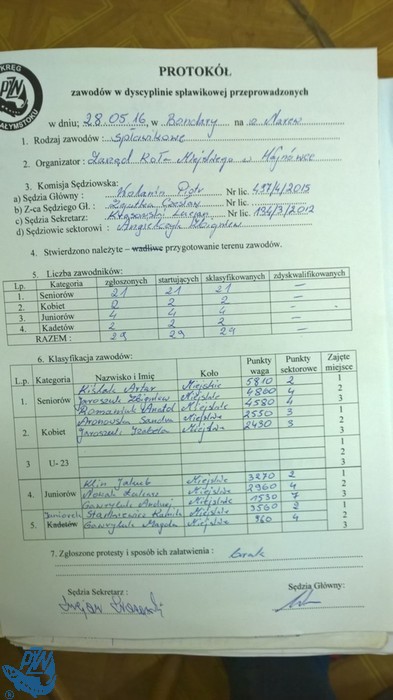 KRĘG
PZW
PROTOKÓŁ
zawodów w dyscyplinie spławikowej przeprowadzonych
w dniu; 28.05.16, w Bondary na o Narew
1. Rodzaj zawodów : Spławikowe
2. Organizator : Zarząd Koła Miejskiego w Hajnówce
3. Komisja Sędziowska:
a) Sędzia Główny : Piotr Nr lic. 497/4/2015
b) Z-ca Sędziego Gł. : Czesław Nr lic.
c) Sędzia Sekretarz: Nr lic. 194/3/2012
d) Sędziowie sektorowi :
4. Stwierdzono należyte – wadliwe przygotowanie terenu zawodów.
5. Liczba zawodników:
Lp. Kategoria zgłoszonych startujących sklasyfikowanych zdyskwalifikowanych
1. Seniorów 21 21 21 –
2. Kobiet 2 2 2 –
3. Juniorów 4 4 4 –
4. Kadetów 2 2 2 –
RAZEM : 29 29 29 –
6. Klasyfikacja zawodów:
L.p. Kategoria Nazwisko i Imię Koło Punkty waga Punkty sektorowe Zajęte miejsce
Artur Miejskie 5810 2 1
1. Seniorów Jaroszuk Zbigniew Miejskie 4860 4 2
Romaniuk Anatol Miejskie 4580 4 3
Aronowska Sandra Miejskie 2550 3 1
2. Kobiet Jaroszuk Izabela Miejskie 2430 3 2
3
3 U- 23 1
2
3
Klin Jakub Miejskie 3270 2 1
4. Juniorów Nowak Łukasz Miejskie 2960 4 2
Gawryluk Andrzej Miejskie 1530 7 3
Juniorek Kamila Miejskie 3560 2 1
5. Kadetów Gawryluk Magda Miejskie 960 4 2
3
7. Zgłoszone protesty i sposób ich załatwienia : brak
Sędzia Sekretarz : Sędzia Główny:
PZW